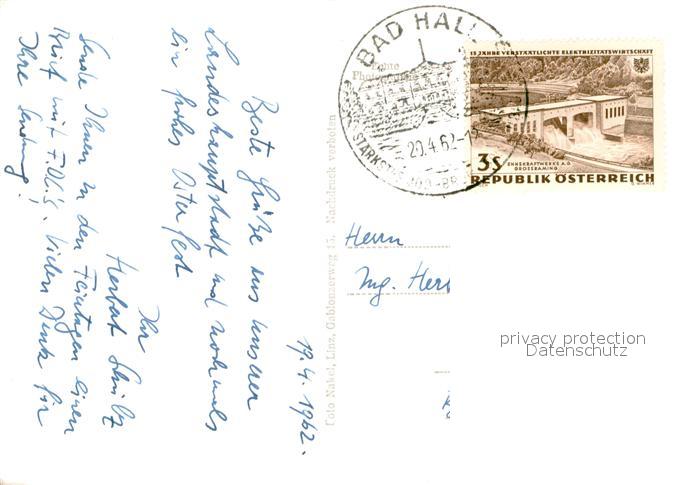 19.4.1962.
Beste Grüße aus unserer
Landeshauptstadt und nochmals
ein frohes Osterfest
Ihr
Herbert
Sende Ihnen in den Feiertagen einen
Brief mit Vielen Dank für
Ihre Sendung!
Foto Nakel, Linz, Gablonzerweg 15. Nachdruck verboten
Echte
BAD HALL
20.4.62-19
STÄRKSTE JOD-BR
15 JAHRE VERSTAATLICHTE ELEKTRIZITÄTSWIRTSCHAFT
3S
ENNSKRAFTWERKE A.G.
GROSSRAMING
REPUBLIK ÖSTERREICH
Herrn
Ing. Her
privacy protection
Datenschutz